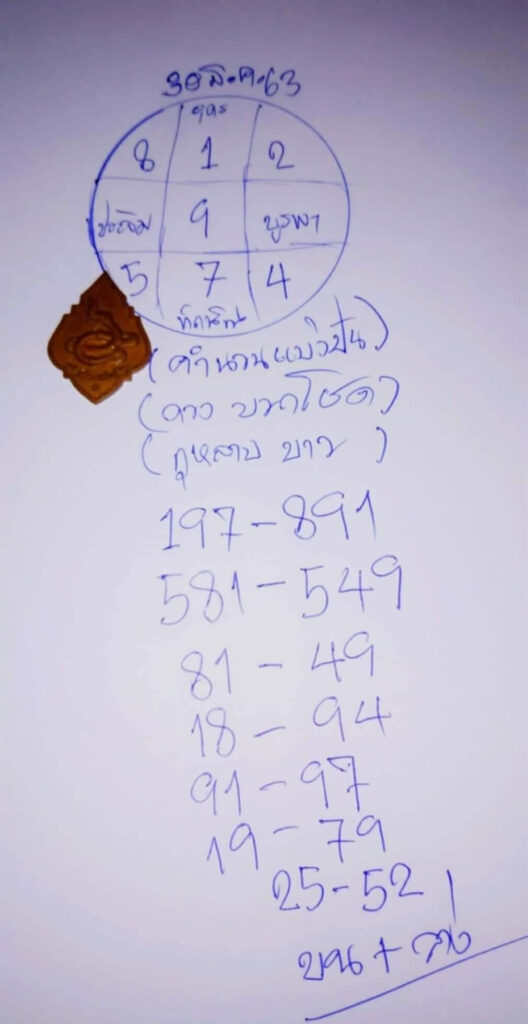 30 มี.ค.63
อุดร
8 1 2
ประจิม 9 บูรพา
5 7 4
ทักษิณ
(คำนวนแบ่งปัน)
(ดวง บวกโชค)
(กุหลาบ ขาว)
197-891
581-549
81-49
18-94
91-97
19-79
25-52
บน+ล่าง